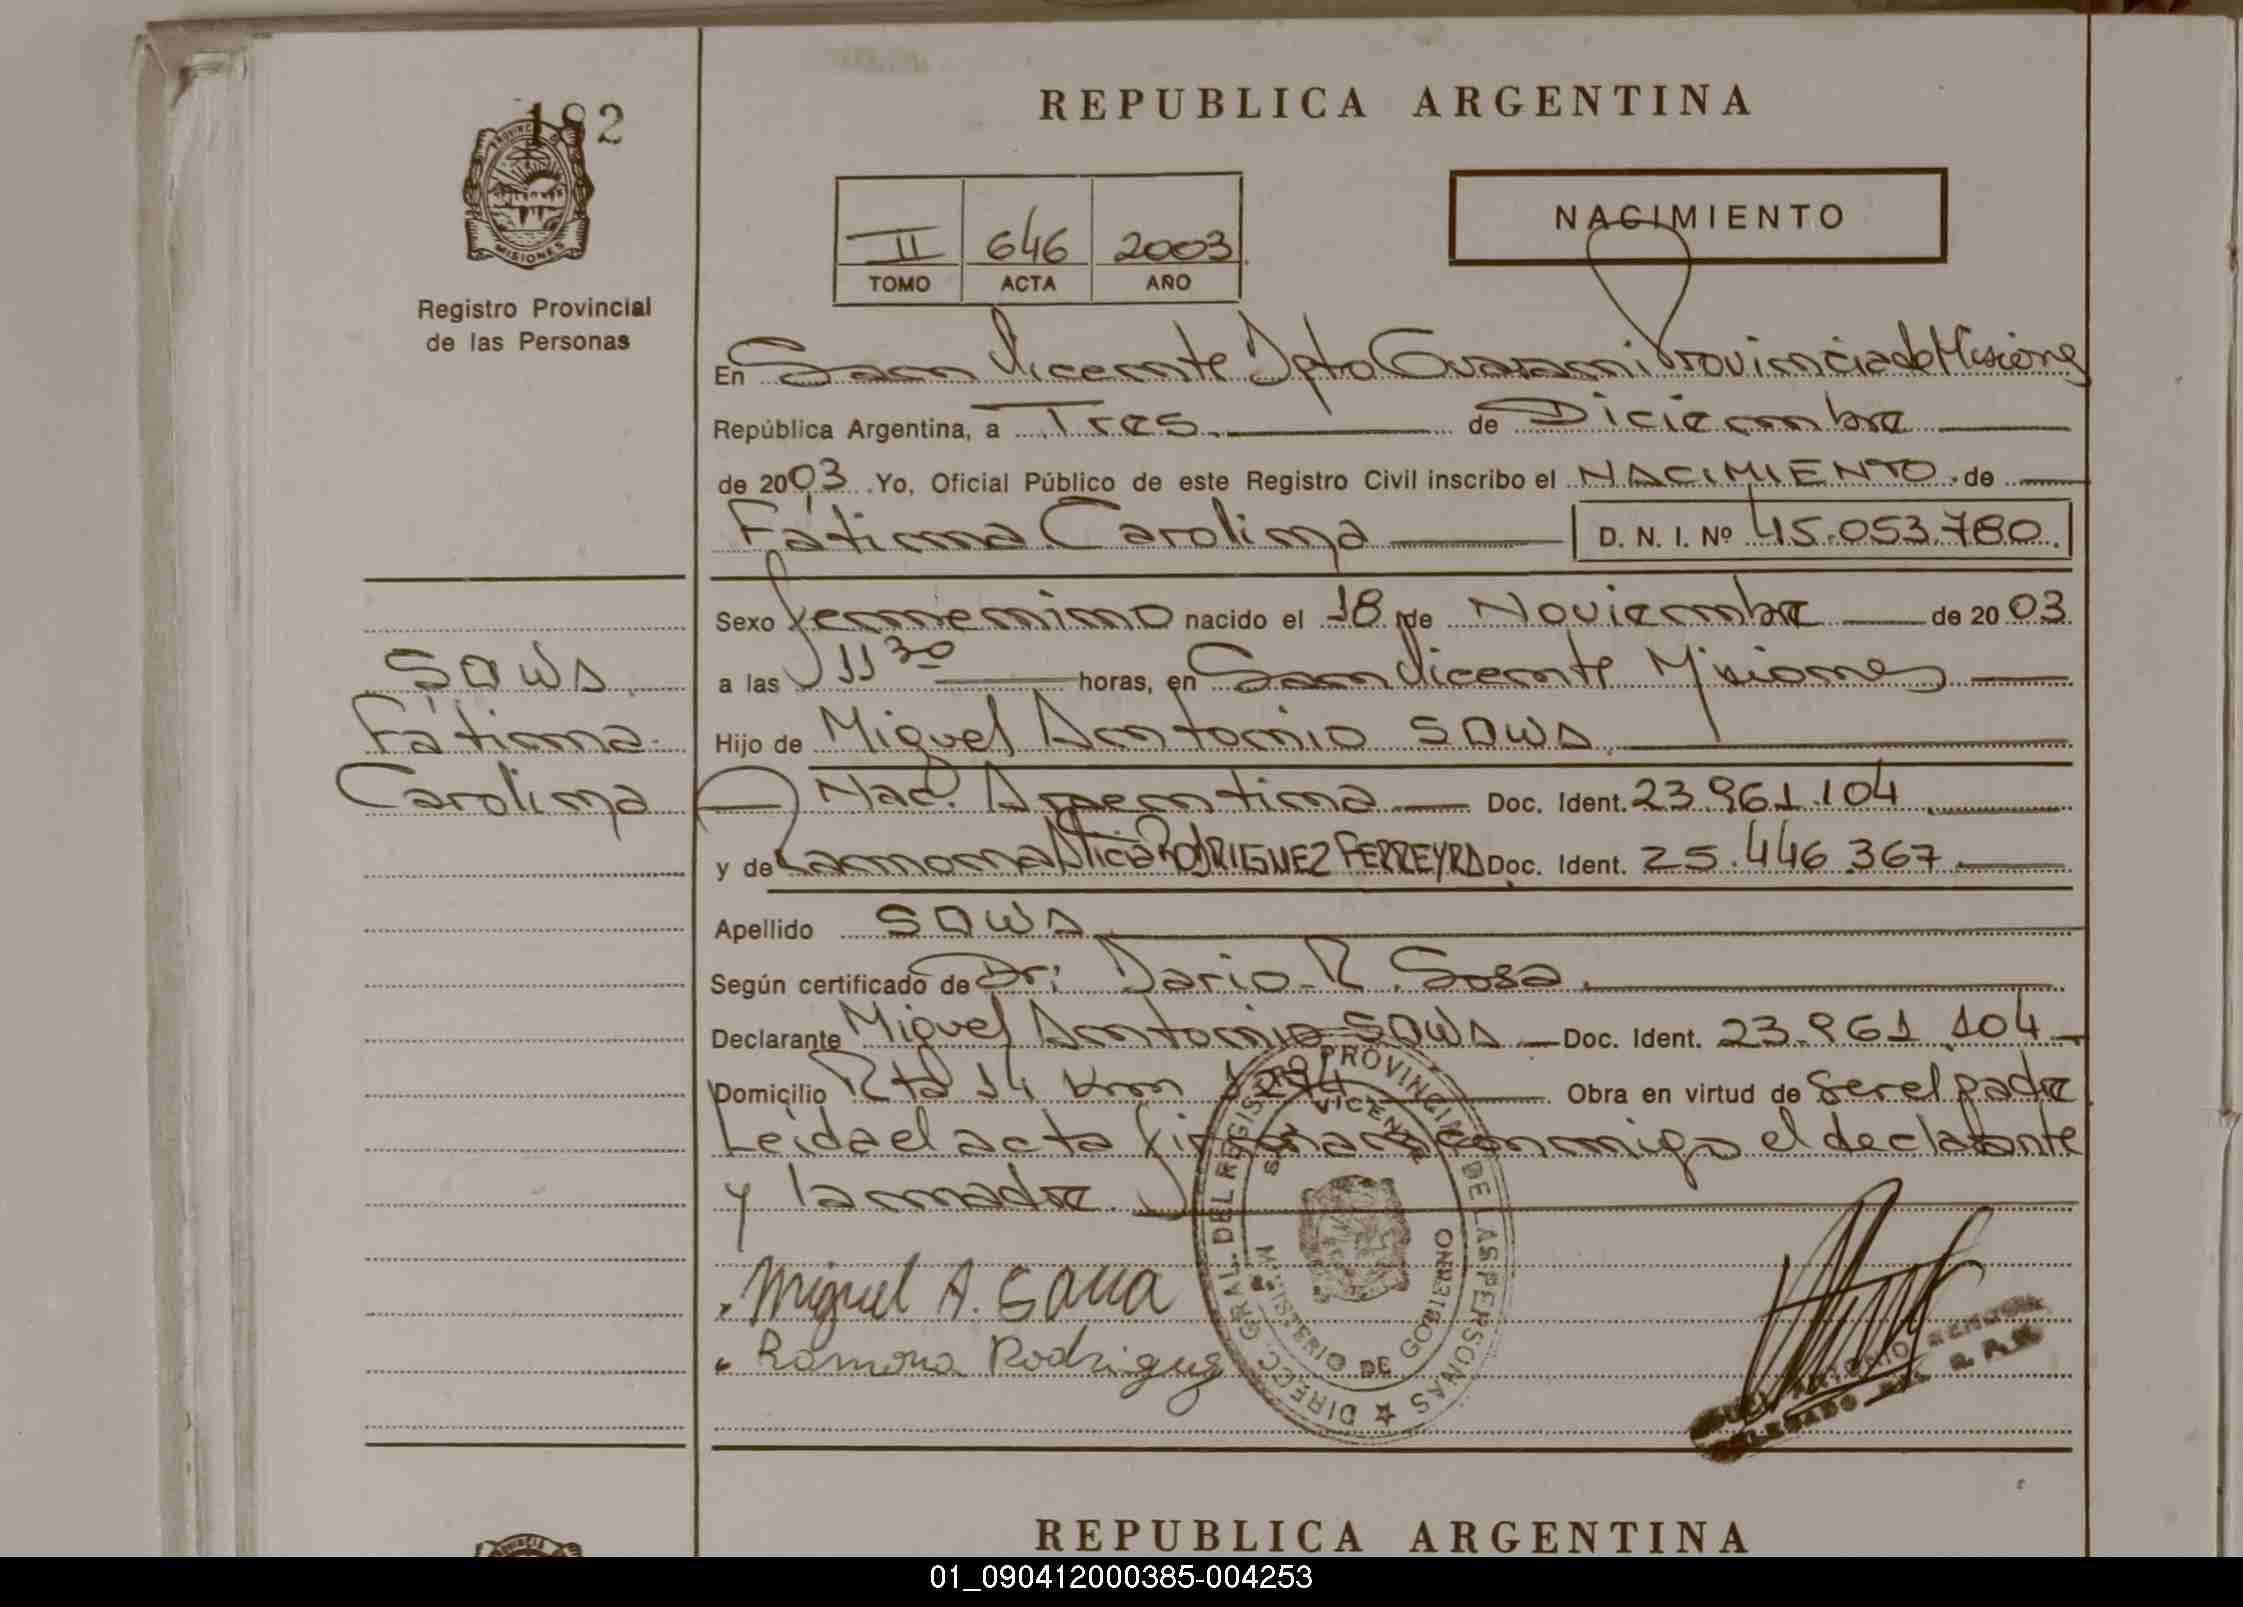 182
REPUBLICA ARGENTINA
PROVINCIA DE
MISIONES
Registro Provincial
de las Personas
II 646 2003
TOMO ACTA AÑO
NACIMIENTO
En San Vicente Dpto Guarani Provincia de Misiones
República Argentina, a Tres de Diciembre
de 2003 Yo, Oficial Público de este Registro Civil inscribo el NACIMIENTO de
Fátima Carolina D. N. I. Nº 45.053.780
Sexo femenino nacido el 18 de Noviembre de 2003
a las 11 30 horas, en San Vicente Misiones
Hijo de Miguel Antonio SAWA
Nac. Argentina Doc. Ident. 23.961.104
y de Ramona Alicia RODRIGUEZ FERREYRA Doc. Ident. 25.446.367
Apellido SAWA
Según certificado de Dr: Dario R. Sosa
Declarante Miguel Antonio SAWA Doc. Ident. 23.961.104
Domicilio Rta 14 Km Obra en virtud de ser el padre
Leida el acta firman conmigo el declarante
y la madre.
SAWA
Fátima
Carolina
Miguel A. Saua
Ramona Rodriguez
DIRECC. GRAL. DEL REGISTRO PROVINCIAL DE LAS PERSONAS
SAN VICENTE
MINISTERIO DE GOBIERNO
ANTONIO
DELEGADO DEL R. P. P.
REPUBLICA ARGENTINA
01_090412000385-004253